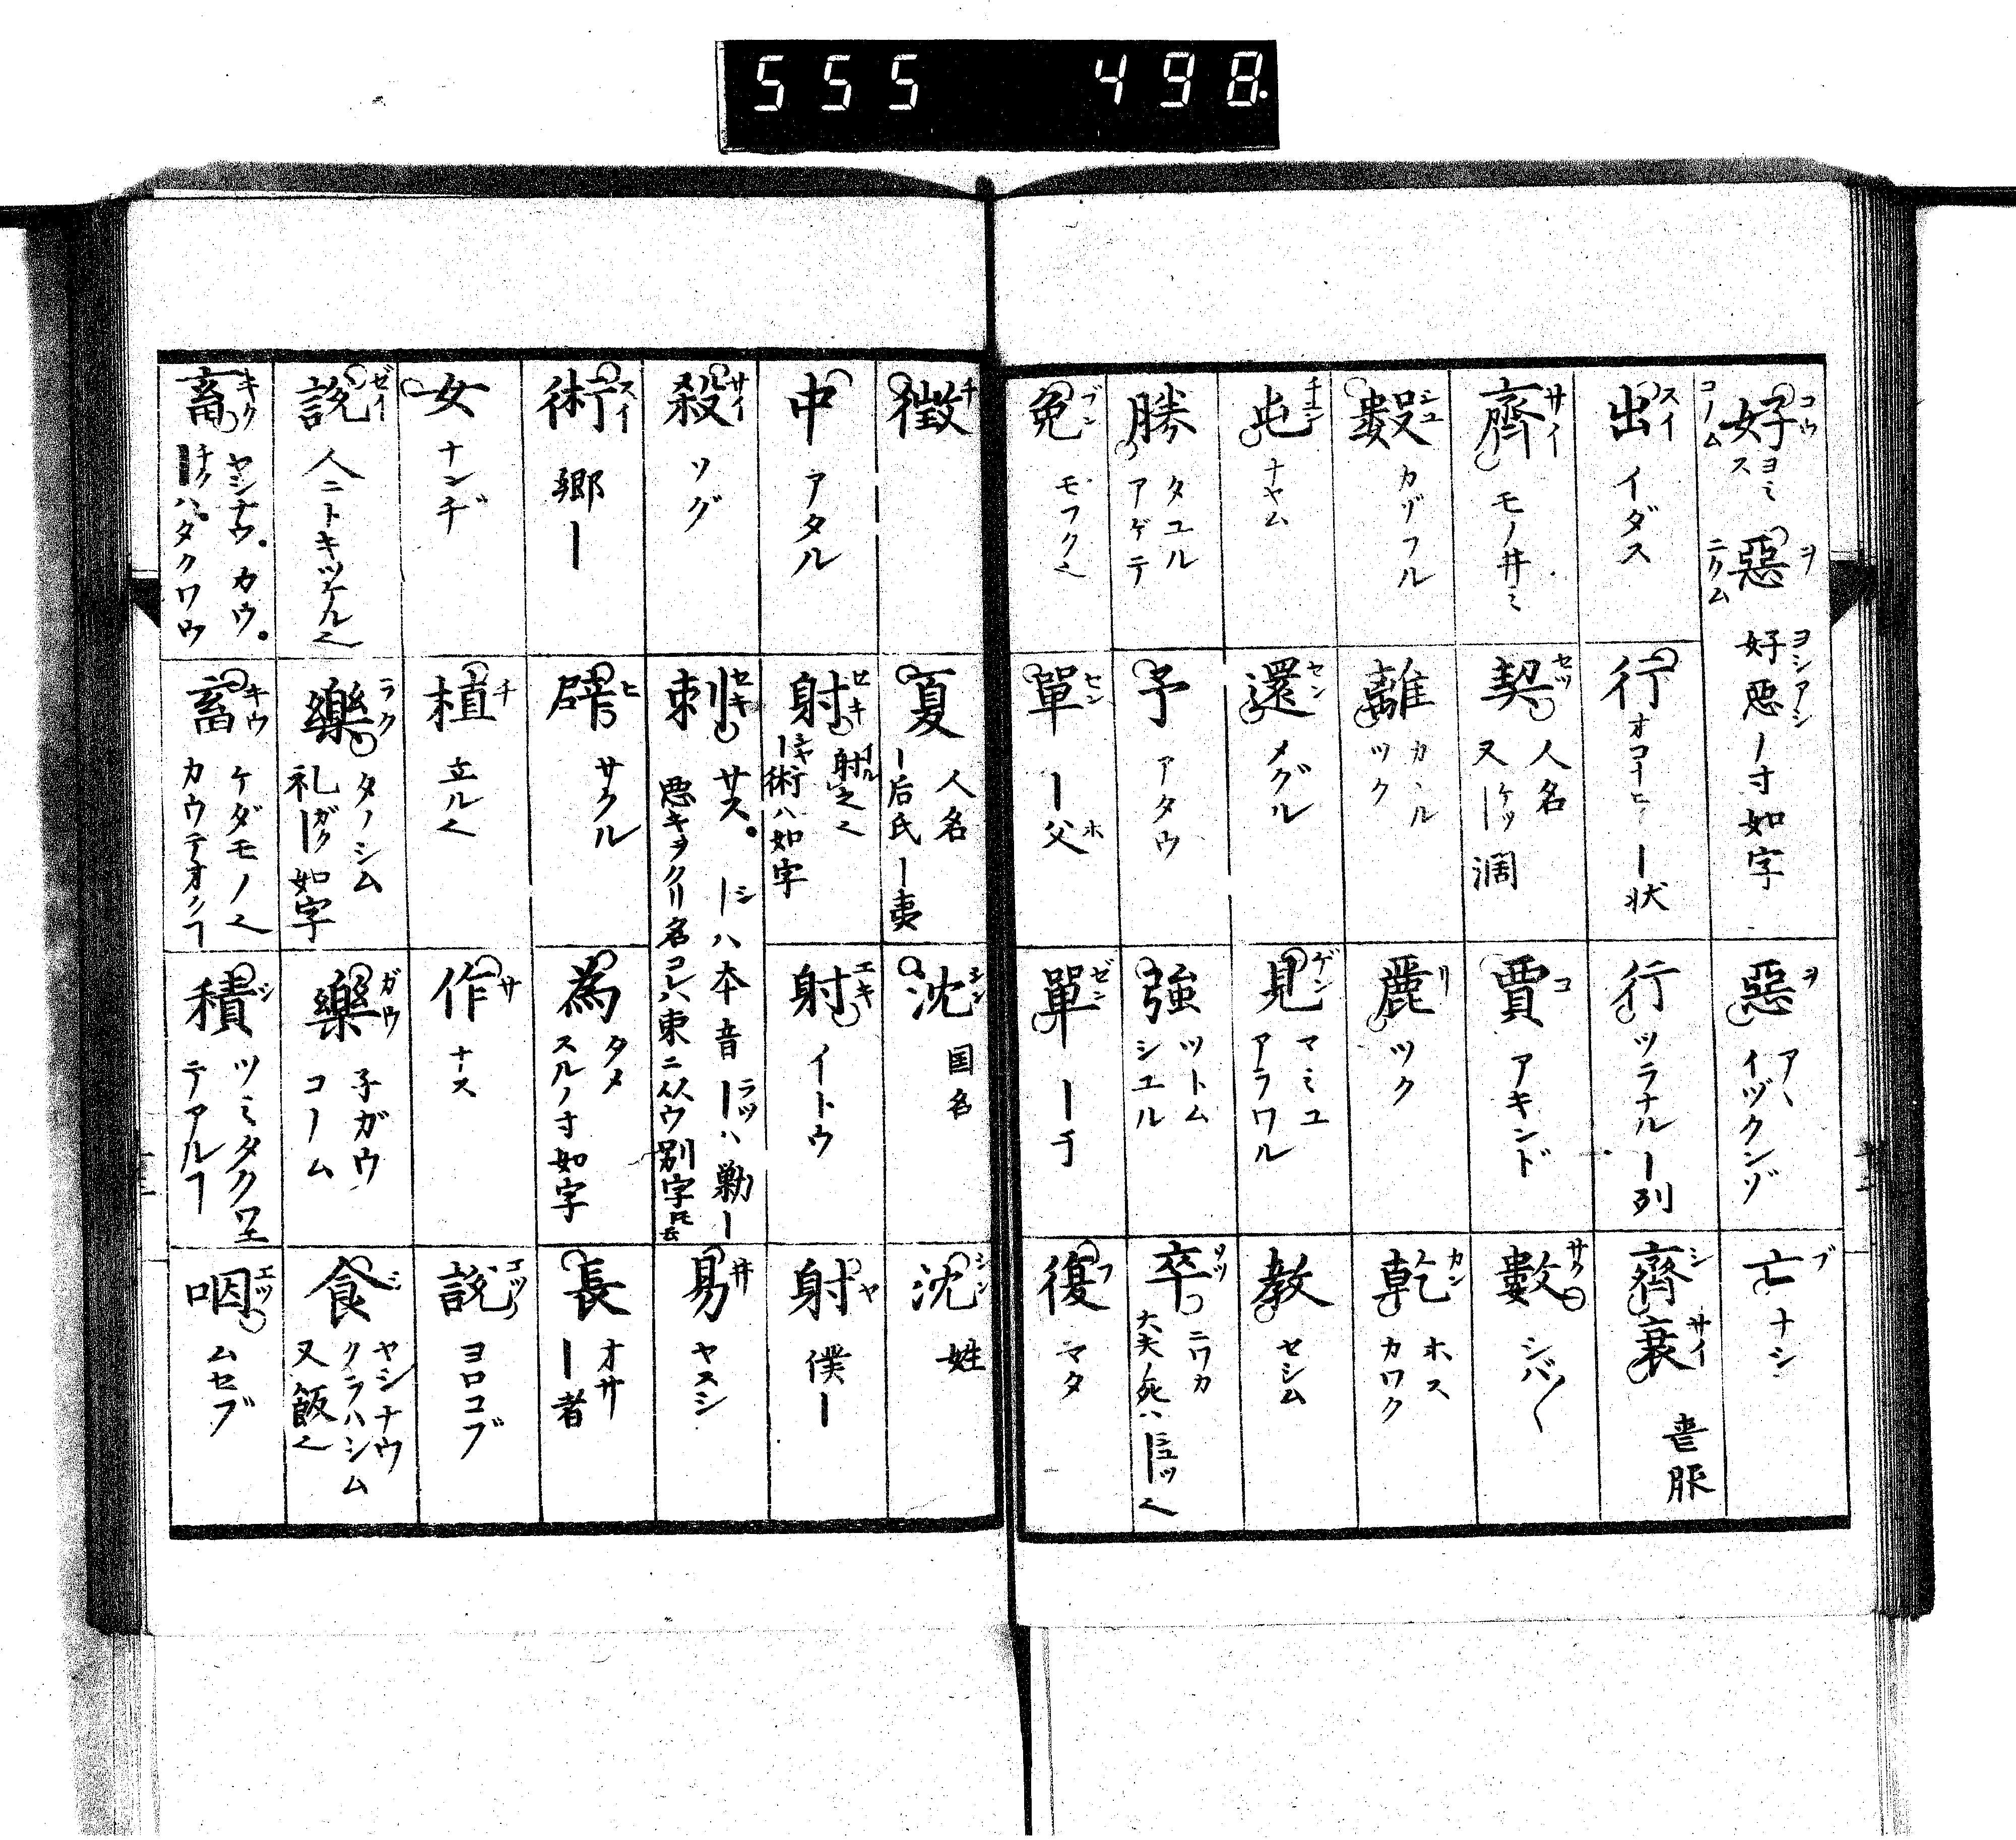 555 498.
好 コウ コノム ヨミス 惡 ヲ ニクム 好惡ノ寸如字 ヨシアシ
惡 ヲ アヽ イヅクンゾ
亡 ブ ナシ
出 スイ イダス
行 オコナヒ ー状
行 ツラナル ー列
齊 シ 衰 サイ 喪服
齊 サイ モノ井ミ
契 セツ 人名 又ケツー濶
賈 コ アキンド
數 サク シバ〱
數 シユ カゾフル
離 カヽル ツク
麗 リ ツク
乾 カン ホス カワク
屯 チユン ナヤム
還 セン メグル
見 ゲン マミユ アラワル
教 セシム
勝 タユル アゲテ
予 アタウ
強 ツトム シユル
卒 ソツ ニワカ 大夫ノ死ハーシユツ也
免 ブン モフク也
單 セン ー父 ホ
單 ゼン ー于
復 フ マタ
徴 チ
夏 人名 ー后氏 ー夷
沈 シン 国名
沈 シン 姓
中 アタル
射 セキ 射之也 イル ーシヤ術ハ如字
射 エキ イトウ
射 ヤ 僕ー
殺 サイ ソグ
刺 セキ サス。ーシハ本音ーラツハ勦ー
悪キヲクリ名コレハ束ニ从ウ別字
易 井 ヤスシ
術 スイ 郷ー
辟 ヒ サクル
為 タメ スルノ寸如字
長 オサ ー者
女 ナンヂ
植 チ 立ル也
作 サ ナス
説 エツ ヨロコブ
説 ゼイ 人ニトキツケル也
樂 ラク タノシム 礼ーガク如字
樂 ガウ 子ガウ コノム
食 シ ヤシナウ クラハシム 又飯也
畜 キク ヤシナウ。カウ。ーチクハ。タクワウ
畜 キウ ケダモノ也 カウテオクヿ
積 シ ツミタクワエテアルヿ
咽 エツ ムセブ